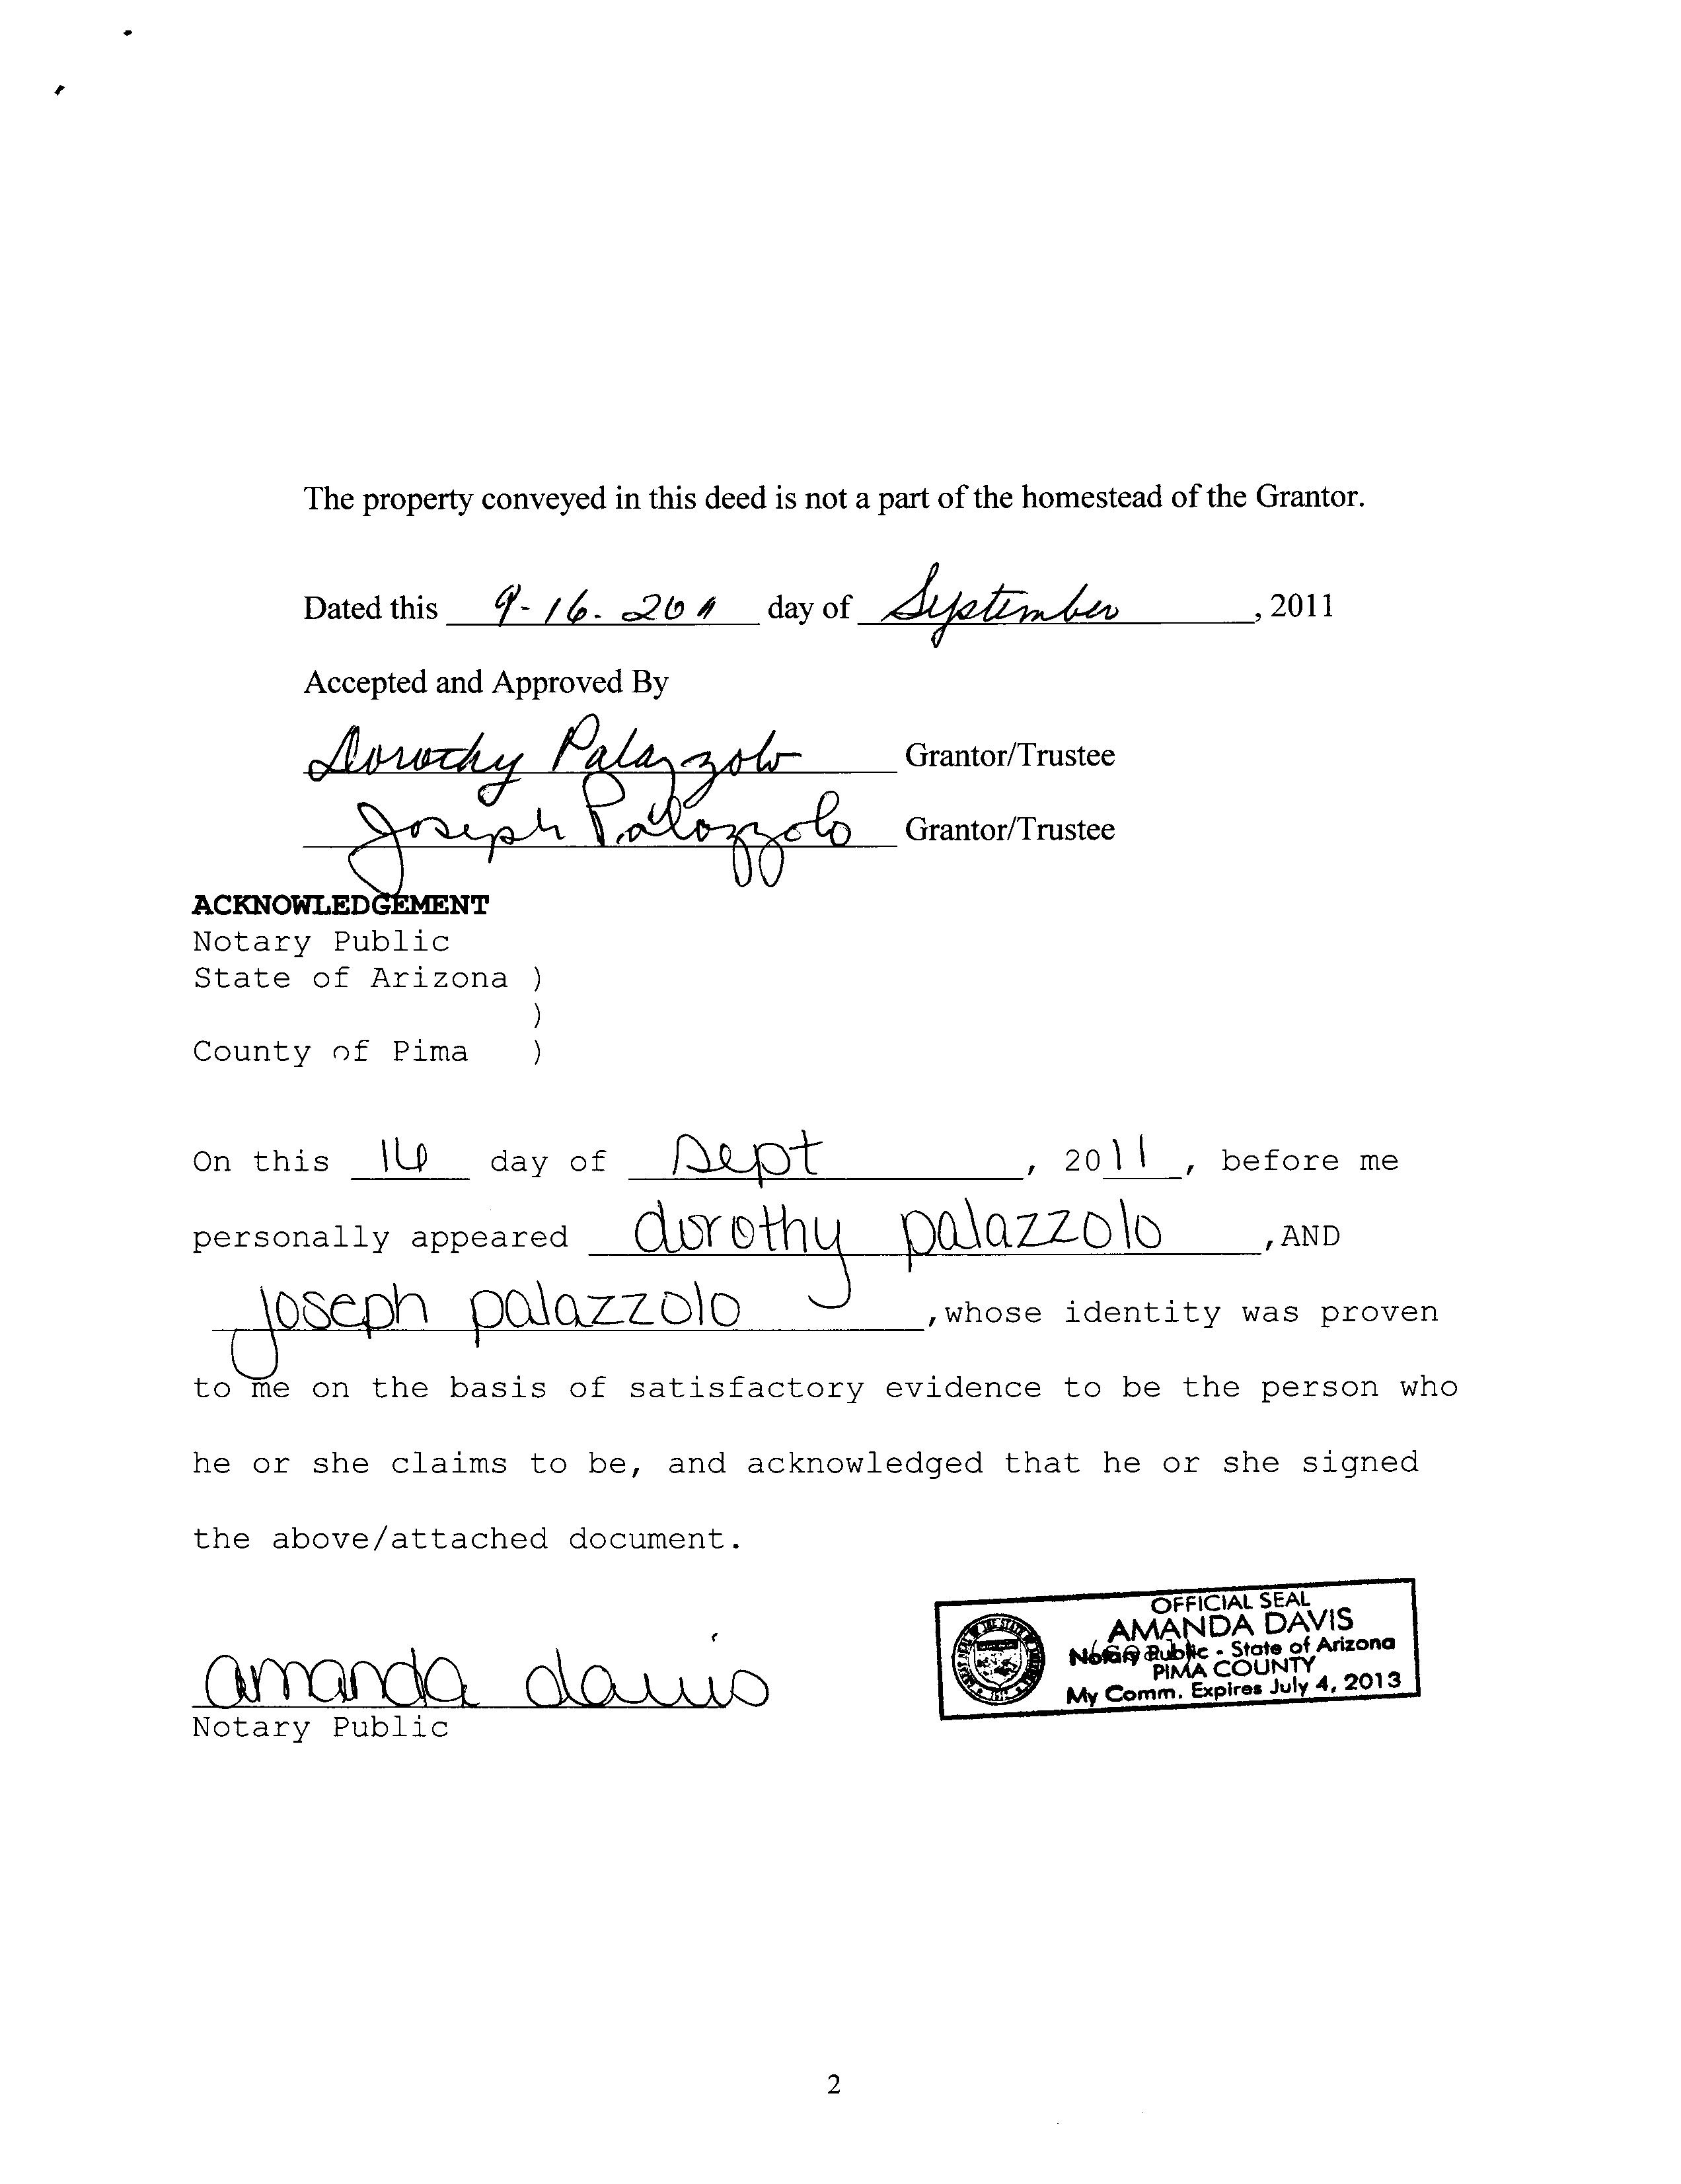 The property conveyed in this deed is not a part of the homestead of the Grantor.
Dated this 9-16-2011 day of September, 2011
Accepted and Approved By
Dorothy Palazzolo Grantor/Trustee
Joseph Palazzolo Grantor/Trustee
ACKNOWLEDGEMENT
Notary Public
State of Arizona )
)
County of Pima )
On this 16 day of Sept, 2011, before me
personally appeared dorothy palazzolo, AND
joseph palazzolo, whose identity was proven
to me on the basis of satisfactory evidence to be the person who
he or she claims to be, and acknowledged that he or she signed
the above/attached document.
amanda davis
Notary Public
OFFICIAL SEAL
AMANDA DAVIS
Notary Public - State of Arizona
PIMA COUNTY
My Comm. Expires July 4, 2013
2